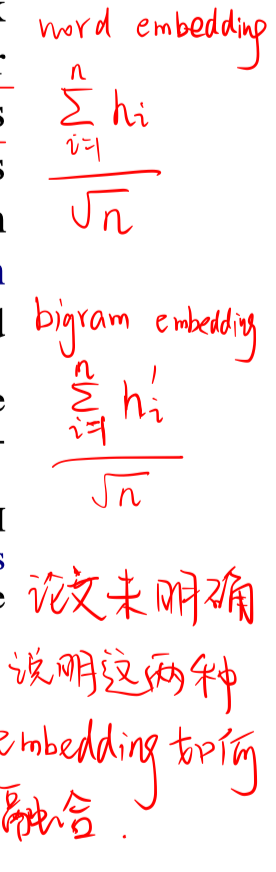 word embedding
n
∑ hi
i=1
√n
bigram embedding
n
∑ hi'
i=1
√n
论文未明确
说明这两种
embedding 如何
融合.